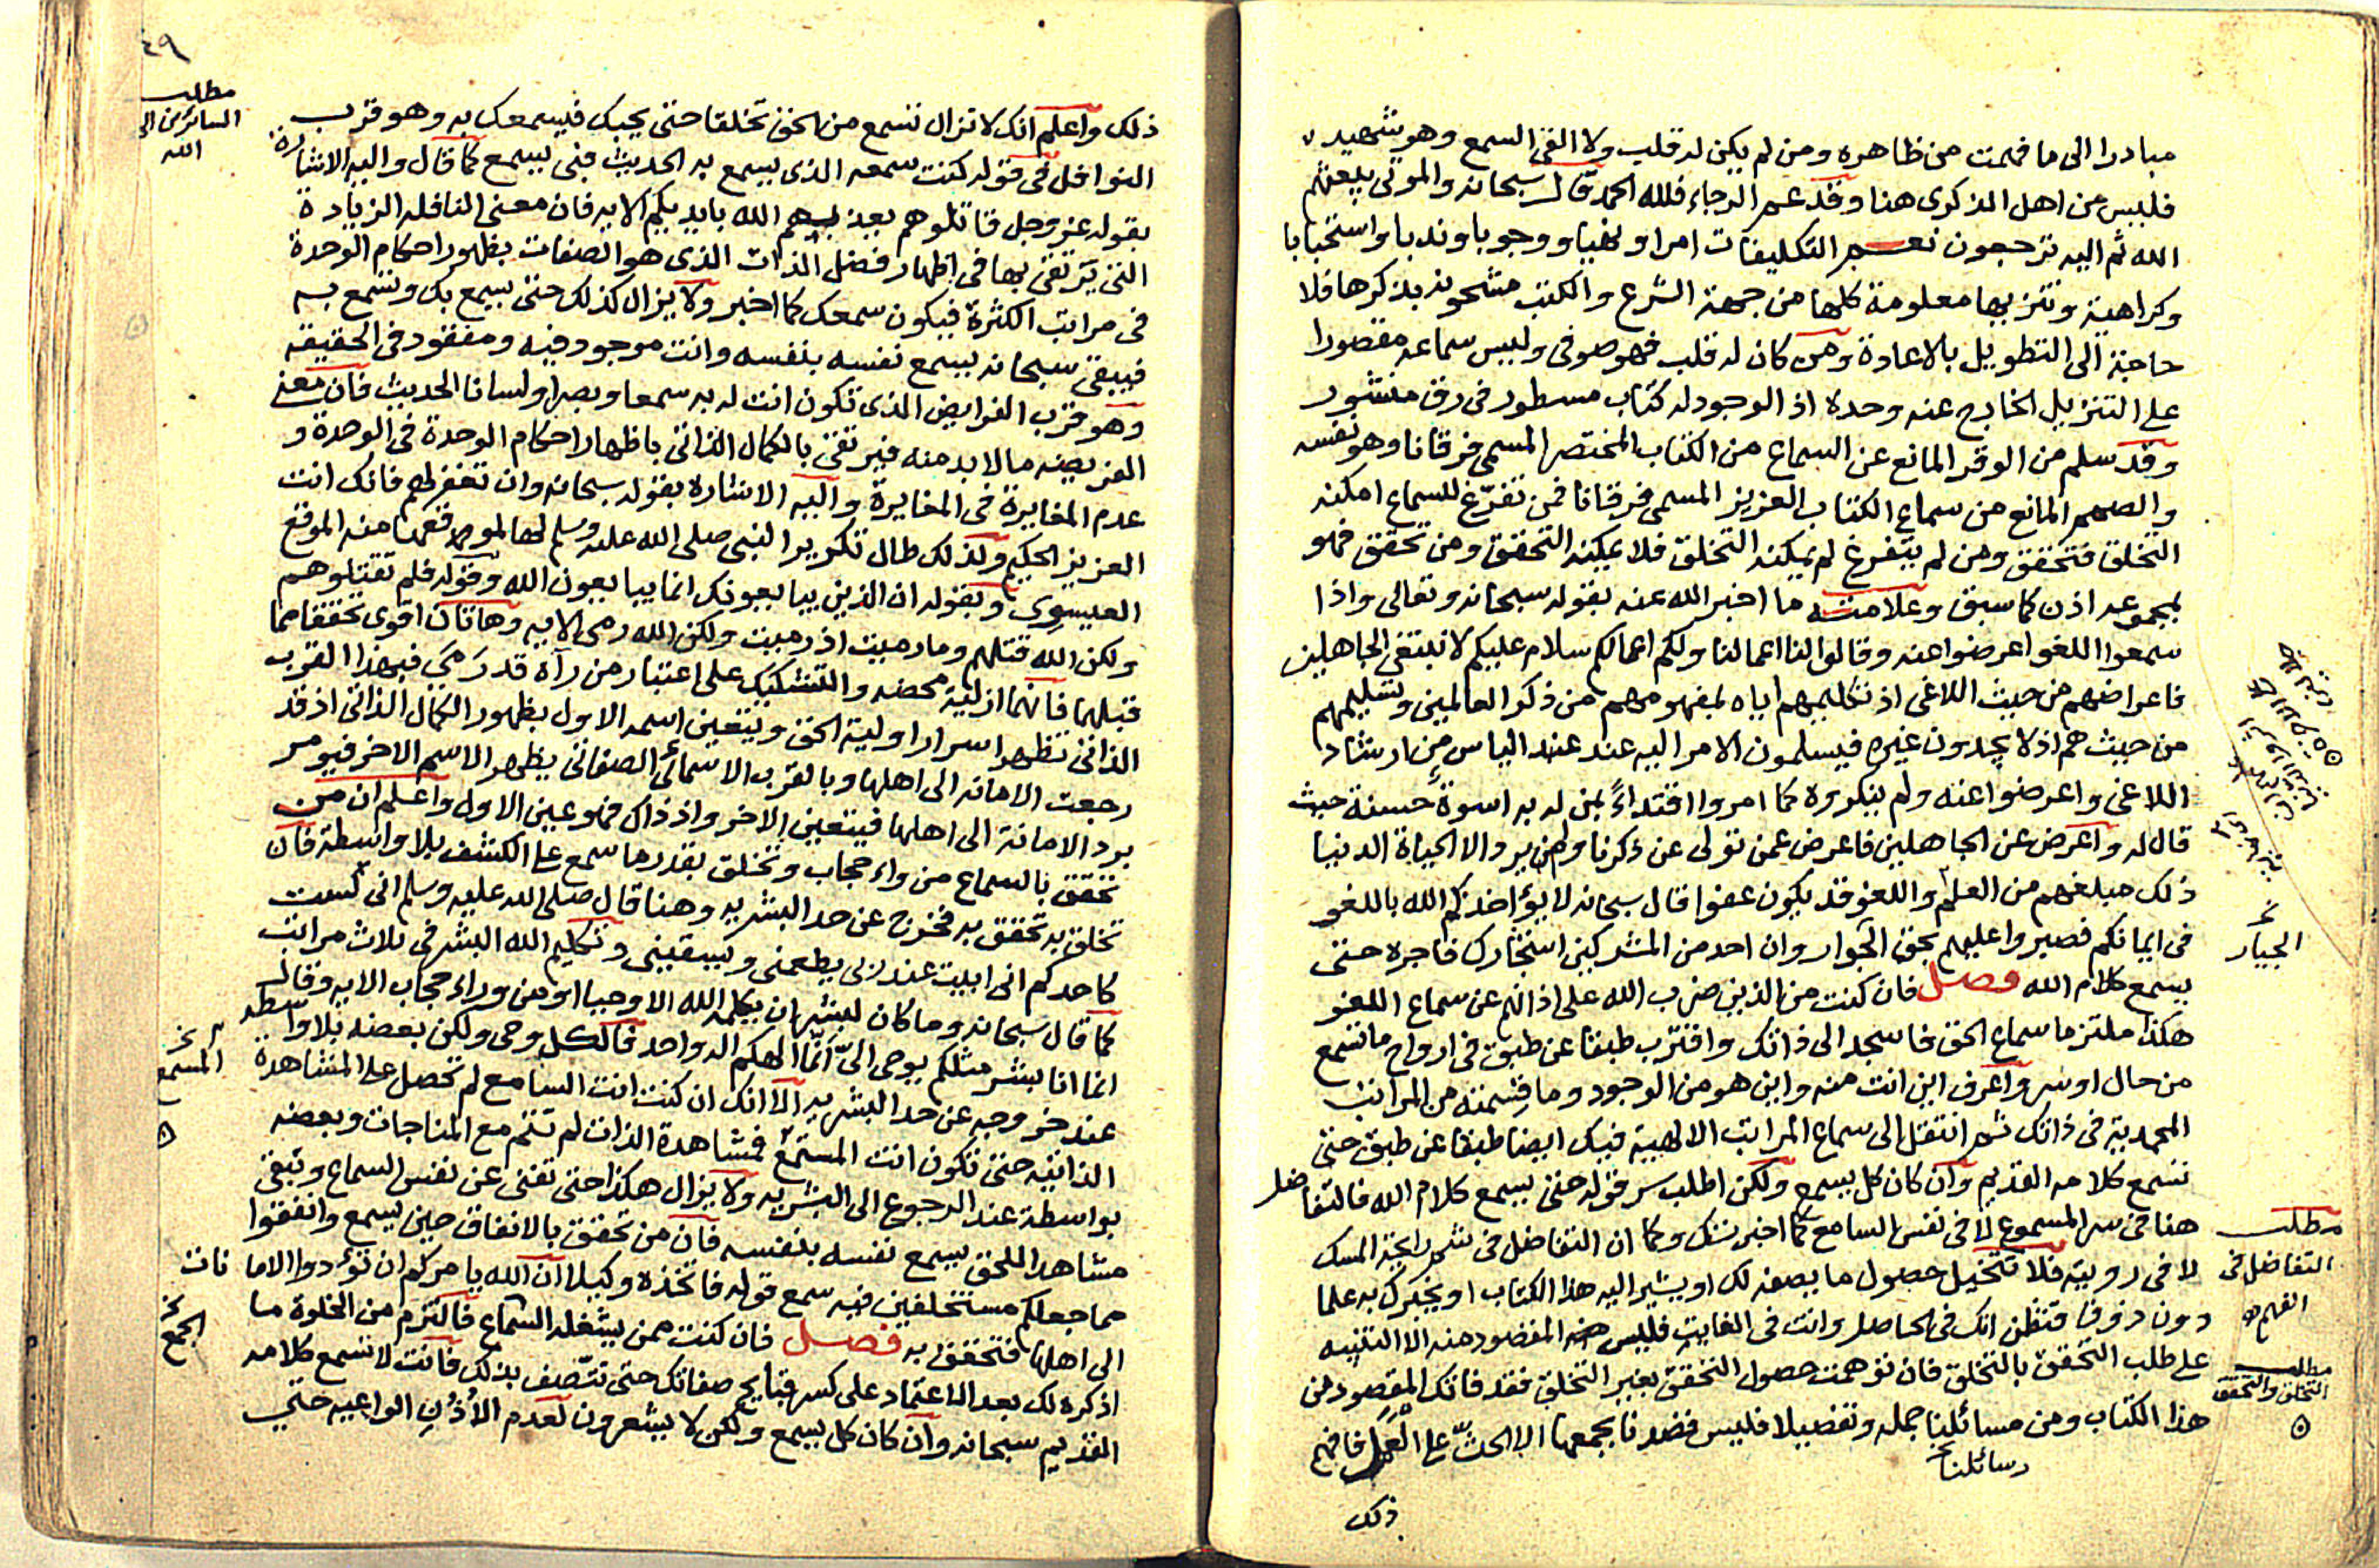 مبادرا الى ما فهمت من ظاهره ومن لم يكن له قلب ولا القى السمع وهو شهيد
فليس من اهل الذكرى هنا وقد عم الرجاء فلله الحمد قال سبحانه والموتى يبعثهم
الله ثم اليه ترجعون نعم التكليفات امرا ونهيا ووجوبا وندبا واستحبابا
وكراهية وتنزيها معلومة كلها من جهة الشرع والكتب مشحونه بذكرها فلا
حاجة الى التطويل بالاعادة ومن كان له قلب فهو صوفى وليس سماعه مقصورا
على التنزيل الخارج عنه وحده اذ الوجود له كتاب مسطور فى رق منشور
وقد سلم من الوقر المانع عن السماع من الكتاب المختصر المسمى فرقانا وهو نفسه
والصمم المانع من سماع الكتاب العزيز المسمى فرقانا فمن تفرّغ للسماع امكنه
التخلق فتحقق ومن لم يتفرغ لم يمكنه التخلق فلا يمكنه التحقق ومن تحقق فهو
بمجموعه اذن كما سبق وعلامته ما اخبر الله عنه بقوله سبحانه وتعالى واذا
سمعوا اللغو اعرضوا عنه وقالوا لنا اعمالنا ولكم اعمالكم سلام عليكم لا نبتغى الجاهلين
فاعراضهم من حيث اللاغى اذ تكليمهم اياه لمفهومهم من ذكر العالمين وتسليمهم
من حيث هم اذ لا يجدون غيره فيسلمون الامر اليه عند عند الياس من ارشاد
اللاغى واعرضوا عنه ولم ينكروه كما امروا اقتداءً بمن له به اسوة حسنة حيث
قال له واعرض عن الجاهلين فاعرض عمن تولى عن ذكرنا ولم يرد الا الحياة الدنيا
ذلك مبلغهم من العلم واللغو قد يكون عفوا قال سبحانه لا يؤاخذكم الله باللغو
فى ايمانكم فصبروا عليهم بحق الجوار وان احد من المشركين استجارك فاجره حتى
يسمع كلام الله فصل فان كنت من الذين ضرب الله على اذانهم عن سماع اللغو
هكذا ملتزما سماع الحق فاسجد الى ذاتك واقترب طبقا عن طبق فى ارواح ما تسمع
من حال او سر واعرف اين انت منه واين هو من الوجود وما قسمته من المراتب
المحمدية فى ذاتك ثم انتقل الى سماع المراتب الالهية فيك ايضا طبقا عن طبق حتى
تسمع كلامه القديم وان كان كل يسمع ولكن اطلب سر قوله حتى يسمع كلام الله فالتفاضل
هنا فى سر المسموع لا فى نفس السامع كما اخبرتك وكما ان التفاضل فى شم رايحة المسك
لا فى رويته فلا تتخيل حصول ما يصفه لك او يشير اليه هذا الكتاب او يخبرك به علما
دون ذوقا فتظن انك فى الحاصل وانت فى الغايت فليس المقصود منه الا التنبيه
على طلب التحقق بالتخلق فان توهمت حصول التحقق بغير التخلق فقد فاتك المقصود من
هذا الكتاب ومن مسائلنا جمله وتفصيلا فليس قصدنا بجمعها الا الحثّ على العمل فافهم
رسائلنا
ذلك
الجبار
مطلب
التفاضل فى
الفهم
مطلب
التخلق والتحقق
٤٩
مطلب
السائرين الى
الله
ذلك واعلم انك لا تزال تسمع من الحق تخلقا حتى يحبك فيسمعك به وهو قرب
النوافل فى قوله كنت سمعه الذى يسمع به الحديث فبى يسمع كما قال واليه الاشارة
بقوله عز وجل قاتلوهم يعذبهم الله بايديكم الايه فان معنى النافله الزيادة
التى يرتقى بها فى اظهار فضل الذات الذى هو الصفات بظهور احكام الوحدة
فى مراتب الكثرة فيكون سمعك كما اخبر ولا يزال كذلك حتى يسمع بك وتسمع به
فيبقى سبحانه يسمع نفسه بنفسه وانت موجود فيه ومفقود فى الحقيقه
وهو قرب الفرايض الذى تكون انت له به سمعا وبصرا ولسانا الحديث فان معنى
الفريضه ما لا بد منه فيرتقى بالكمال الذاتى باظهار احكام الوحدة فى الوحدة و
عدم المغايرة فى المغايرة واليه الاشاره بقوله سبحانه وان تغفر لهم فانك انت
العزيز الحكيم ولذلك طال تكرير النبى صلى الله عليه وسلم لها منه الموقع
العيسوى وبقوله ان الذين يبايعونك انما يبايعون الله وقوله فلم تقتلوهم
ولكن الله قتلهم وما رميت اذ رميت ولكن الله رمى الايه وهاتان اقوى تحققا مما
قبلهما فانهما ازلية محضه والتشكيك على اعتبار من رآه قد رَمى فبهذا القرب
الذاتى تظهر اسرار اولية الحق ويتعين اسمه الاول بظهور الكمال الذاتى اذ قد
رجعت الامانه الى اهلها وبالقرب الاسمائى الصفاتى يظهر الاسم الاخر فيومر
برد الامانة الى اهلها فيتعين الاخر واذ ذاك فهو عين الاول واعلم ان من
تحقق بالسماع من وراء حجاب وتخلق بقدر ما سمع على الكشف بلا واسطة فان
تخلق به تحقق به فخرج عن حد البشريه وهنا قال صلى الله عليه وسلم انى لست
كاحدكم انى ابيت عند ربى يطعمنى ويسقينى وتكليم الله البشر فى ثلاث مراتب
كما قال سبحانه وما كان لبشر ان يكلمه الله الا وحيا او من وراء حجاب الايه وقال
انما انا بشر مثلكم يوحى الىّ انما الهكم اله واحد فالكل وحى ولكن بعضه بلا واسطه
عند خروجه عن حد البشريه الا انك ان كنت انت السامع لم تحصل على المشاهدة
الذاتيه حتى تكون انت المستمع فمشاهدة الذات لم تتم مع المناجات وبعضه
بواسطة عند الرجوع الى البشريه ولا يزال هكذا حتى تفنى عن نفس السماع وتبقى
مشاهدا للحق يسمع نفسه بنفسه فان من تحقق بالانفاق حين يسمع وانفقوا
مما جعلكم مستخلفين فيه سمع قوله فاتخذه وكيلا ان الله يامركم ان تؤدوا الامانات
الى اهلها فتحقق به فصل فان كنت ممن يشغله السماع فالتزم من الخلوة ما
اذكره لك بعد الاعتماد على كسر قبايح صفاتك حتى تتصف بذلك فانت لا تسمع كلامه
القديم سبحانه وان كان كل يسمع ولكن لا يشعرون لعدم الأذن الواعيه حتى
المسمع
الجمع